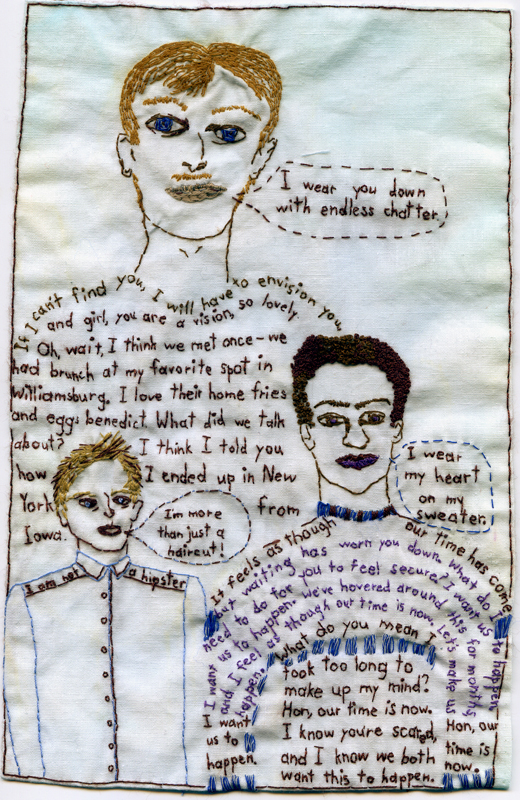 I wear you down
with endless chatter.
If I can't find you, I will have to envision you,
and girl, you are a vision, so lovely.
Oh, wait, I think we met once-we
had brunch at my favorite spot in
Williamsburg. I love their home fries
and eggs benedict. What did we talk
about? I think I told you
how I ended up in New
York from
Iowa.
I'm more
than just a
haircut!
I am not a hipster
I wear
my heart
on my
sweater.
It feels as though our time has come
but waiting has worn you down. What do
need to do for you to feel secure? I want us to happen.
I want us to happen. We've hovered around this for months
and I feel as though our time is now. Let's make us
happen.
What do you mean I
took too long to
make up my mind?
Hon, our time is now.
I know you're scared,
and I know we both
want this to happen.
I want
us to
happen.
Hon, our
time is
now.